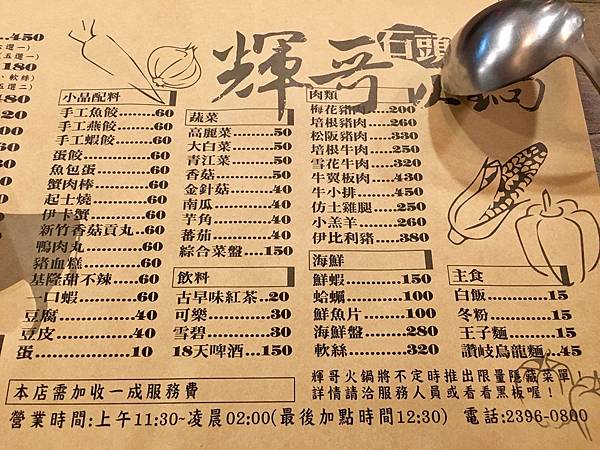 輝哥
石頭
火鍋
450
180
小品配料
手工魚餃......60
手工燕餃......60
手工蝦餃......60
蛋餃......60
魚包蛋......60
蟹肉棒......60
起士燒......60
伊卡蟹......60
新竹香菇貢丸..60
鴨肉丸......60
豬血糕......60
基隆甜不辣......60
一口蝦......60
豆腐......40
豆皮......40
蛋......10
蔬菜
高麗菜......50
大白菜......50
青江菜......50
香菇......50
金針菇......40
南瓜......40
芋角......40
番茄......40
綜合菜盤....150
飲料
古早味紅茶..20
可樂......30
雪碧......30
18天啤酒...150
肉類
梅花豬肉...200
培根豬肉...260
松阪豬肉...330
培根牛肉...250
雪花牛肉...320
牛翼板肉...430
牛小排......450
仿土雞腿...250
小羔羊......260
伊比利豬....380
海鮮
鮮蝦......150
蛤蠣......100
鮮魚片......100
海鮮盤......280
軟絲......320
主食
白飯......15
冬粉......15
王子麵......15
讚岐烏龍麵..45
輝哥火鍋將不定時推出限量隱藏菜單!
詳情請洽服務人員或看看黑板喔!
本店需加收一成服務費
營業時間:上午11:30~凌晨02:00(最後加點時間12:30) 電話:2396-0800